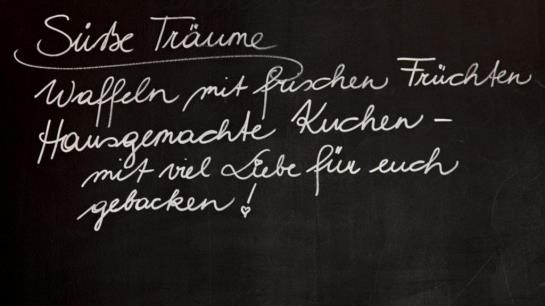 Süße Träume
Waffeln mit frischen Früchten
Hausgemachte Kuchen –
mit viel Liebe für euch
gebacken!